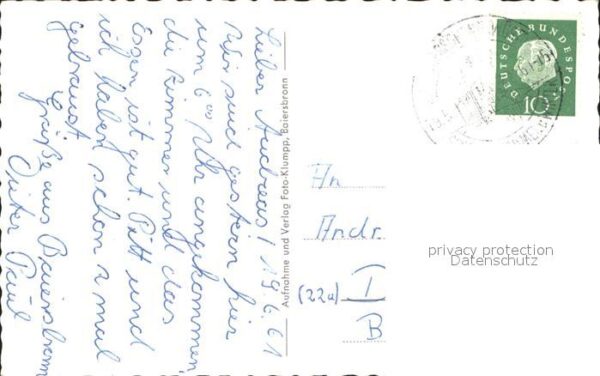 Lieber Andreas! 19.6.61
Wir sind gestern hier
um 6⁰⁰ Uhr angekommen,
die Zimmer und das
Essen ist gut. Pitt und
ich haben schon 2 mal
gebraust.
Grüße aus Baiersbronn
Dieter Paul
Aufnahme und Verlag Foto-Klumpp, Baiersbronn
DEUTSCHE BUNDESPOST
10
An
Andr
(22a) I
B
privacy protection
Datenschutz